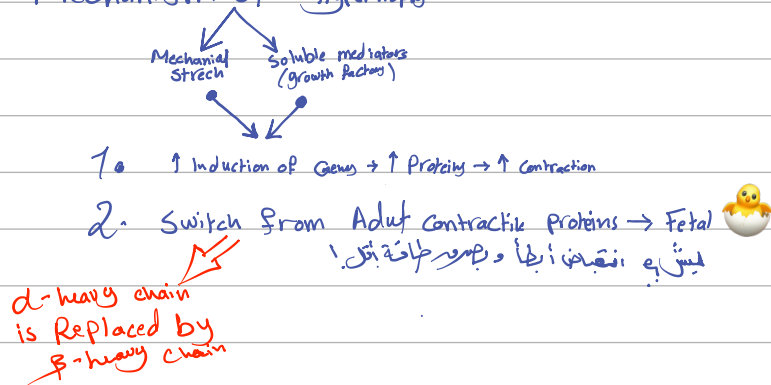 Mechanial Soluble mediators
strech (growth factors)
1. ↑ Induction of Genes → ↑ Proteins → ↑ Contraction
2. Switch from Adult contractile proteins → Fetal
ليش؟ انقباض أبطأ و بصرف طاقة أقل!
α-heavy chain
is Replaced by
β-heavy chain